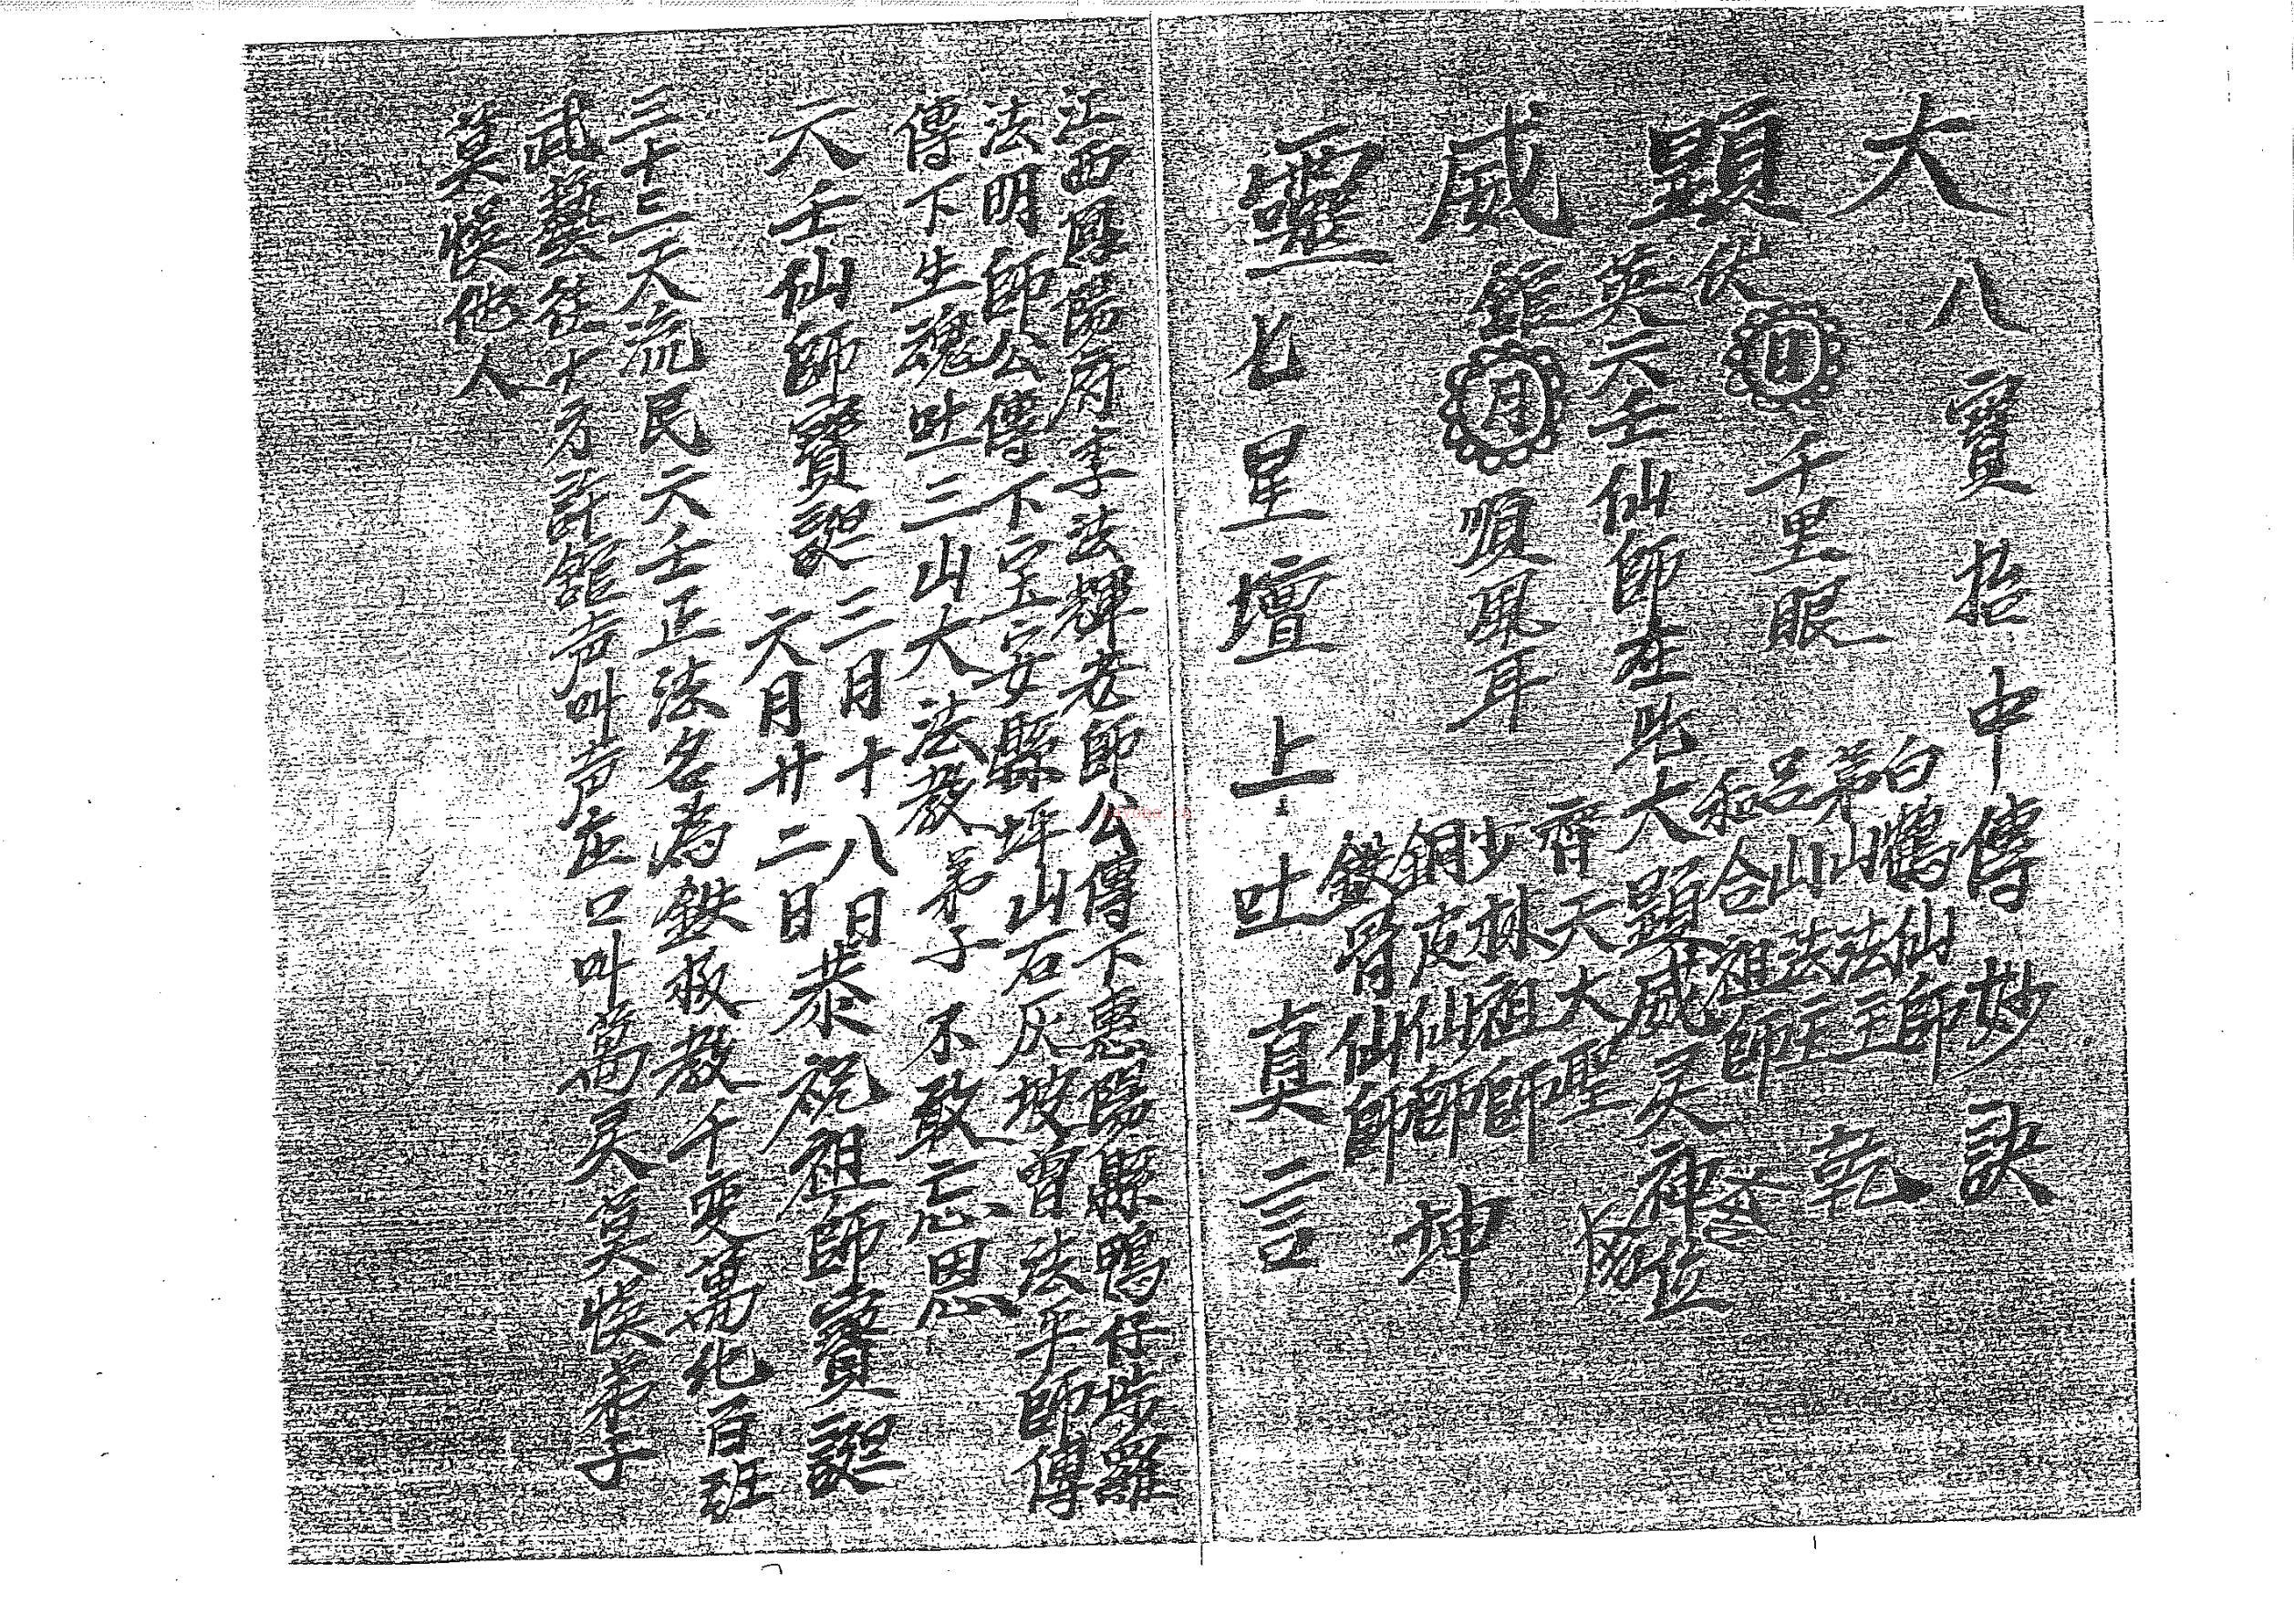 大
顕
威
靈
八寶抬中傳妙訣
伏 日 千里眼
英六壬仙師在此大顕威灵神位
館 月 順風耳
七星壇上吐真言
白鶴仙師
茅山法主
呂山法主
和合祖師
齊天大聖
少林祖師
銅皮仙師
鐵骨仙師
乾
坤
江西厚陽府李法輝老師公傳下惠陽縣鴨仔埗羅
法明師公傳下宝安縣坪山石灰坡曾法平師傅
傳下生魂吐三山大法教弟子不敢忘恩
六壬仙師寶誕 三月十八日 六月廿二日 恭祝祖師寶誕
三十三天流民六壬正法名為鉄板教千变萬化百班
武藝在十方許館声叫声应口叫萬灵莫悮弟子
莫悮他人